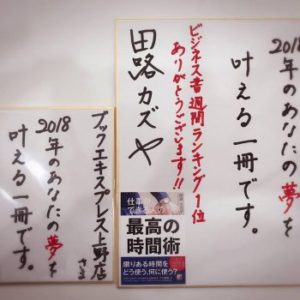 2018年のあなたの夢を
叶える一冊です。
ビジネス書週間ランキング1位
ありがとうございます!!
田路カズヤ
ブックエキスプレス上野店さま
2018年のあなたの夢を
叶える一冊です。
仕事
最高の
時間術
限りある時間を
どう使う、何に使う?